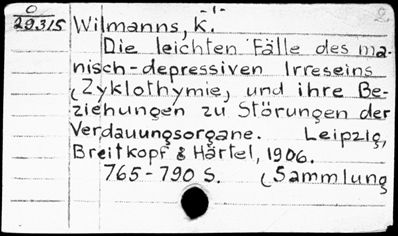 O -1- 2
29315 Wilmanns, K.
Die leichten Fälle des ma-
nisch-depressiven Irreseins
(Zyklothymie) und ihre Be-
ziehungen zu Störungen der
Verdauungsorgane. Leipzig,
Breitkopf & Härtel, 1906.
765-790 S. (Sammlung